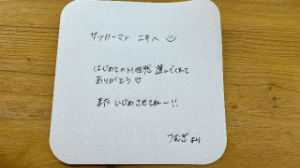 サッカーマン ニキへ ☺
はじめてのM性感 選んでくれて
ありがとう♡
また いじめさせてねー!!
つむぎより